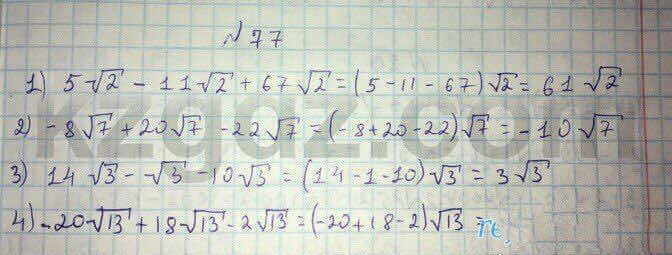 №77
1) 5√2 - 11√2 + 67√2 = (5 - 11 - 67)√2 = 61√2
2) -8√7 + 20√7 - 22√7 = (-8+20-22)√7 = -10√7
3) 14√3 - √3 - 10√3 = (14 - 1 - 10)√3 = 3√3
4) -20√13 + 18√13 - 2√13 = (-20 + 18 - 2)√13 =
kzgdz.com